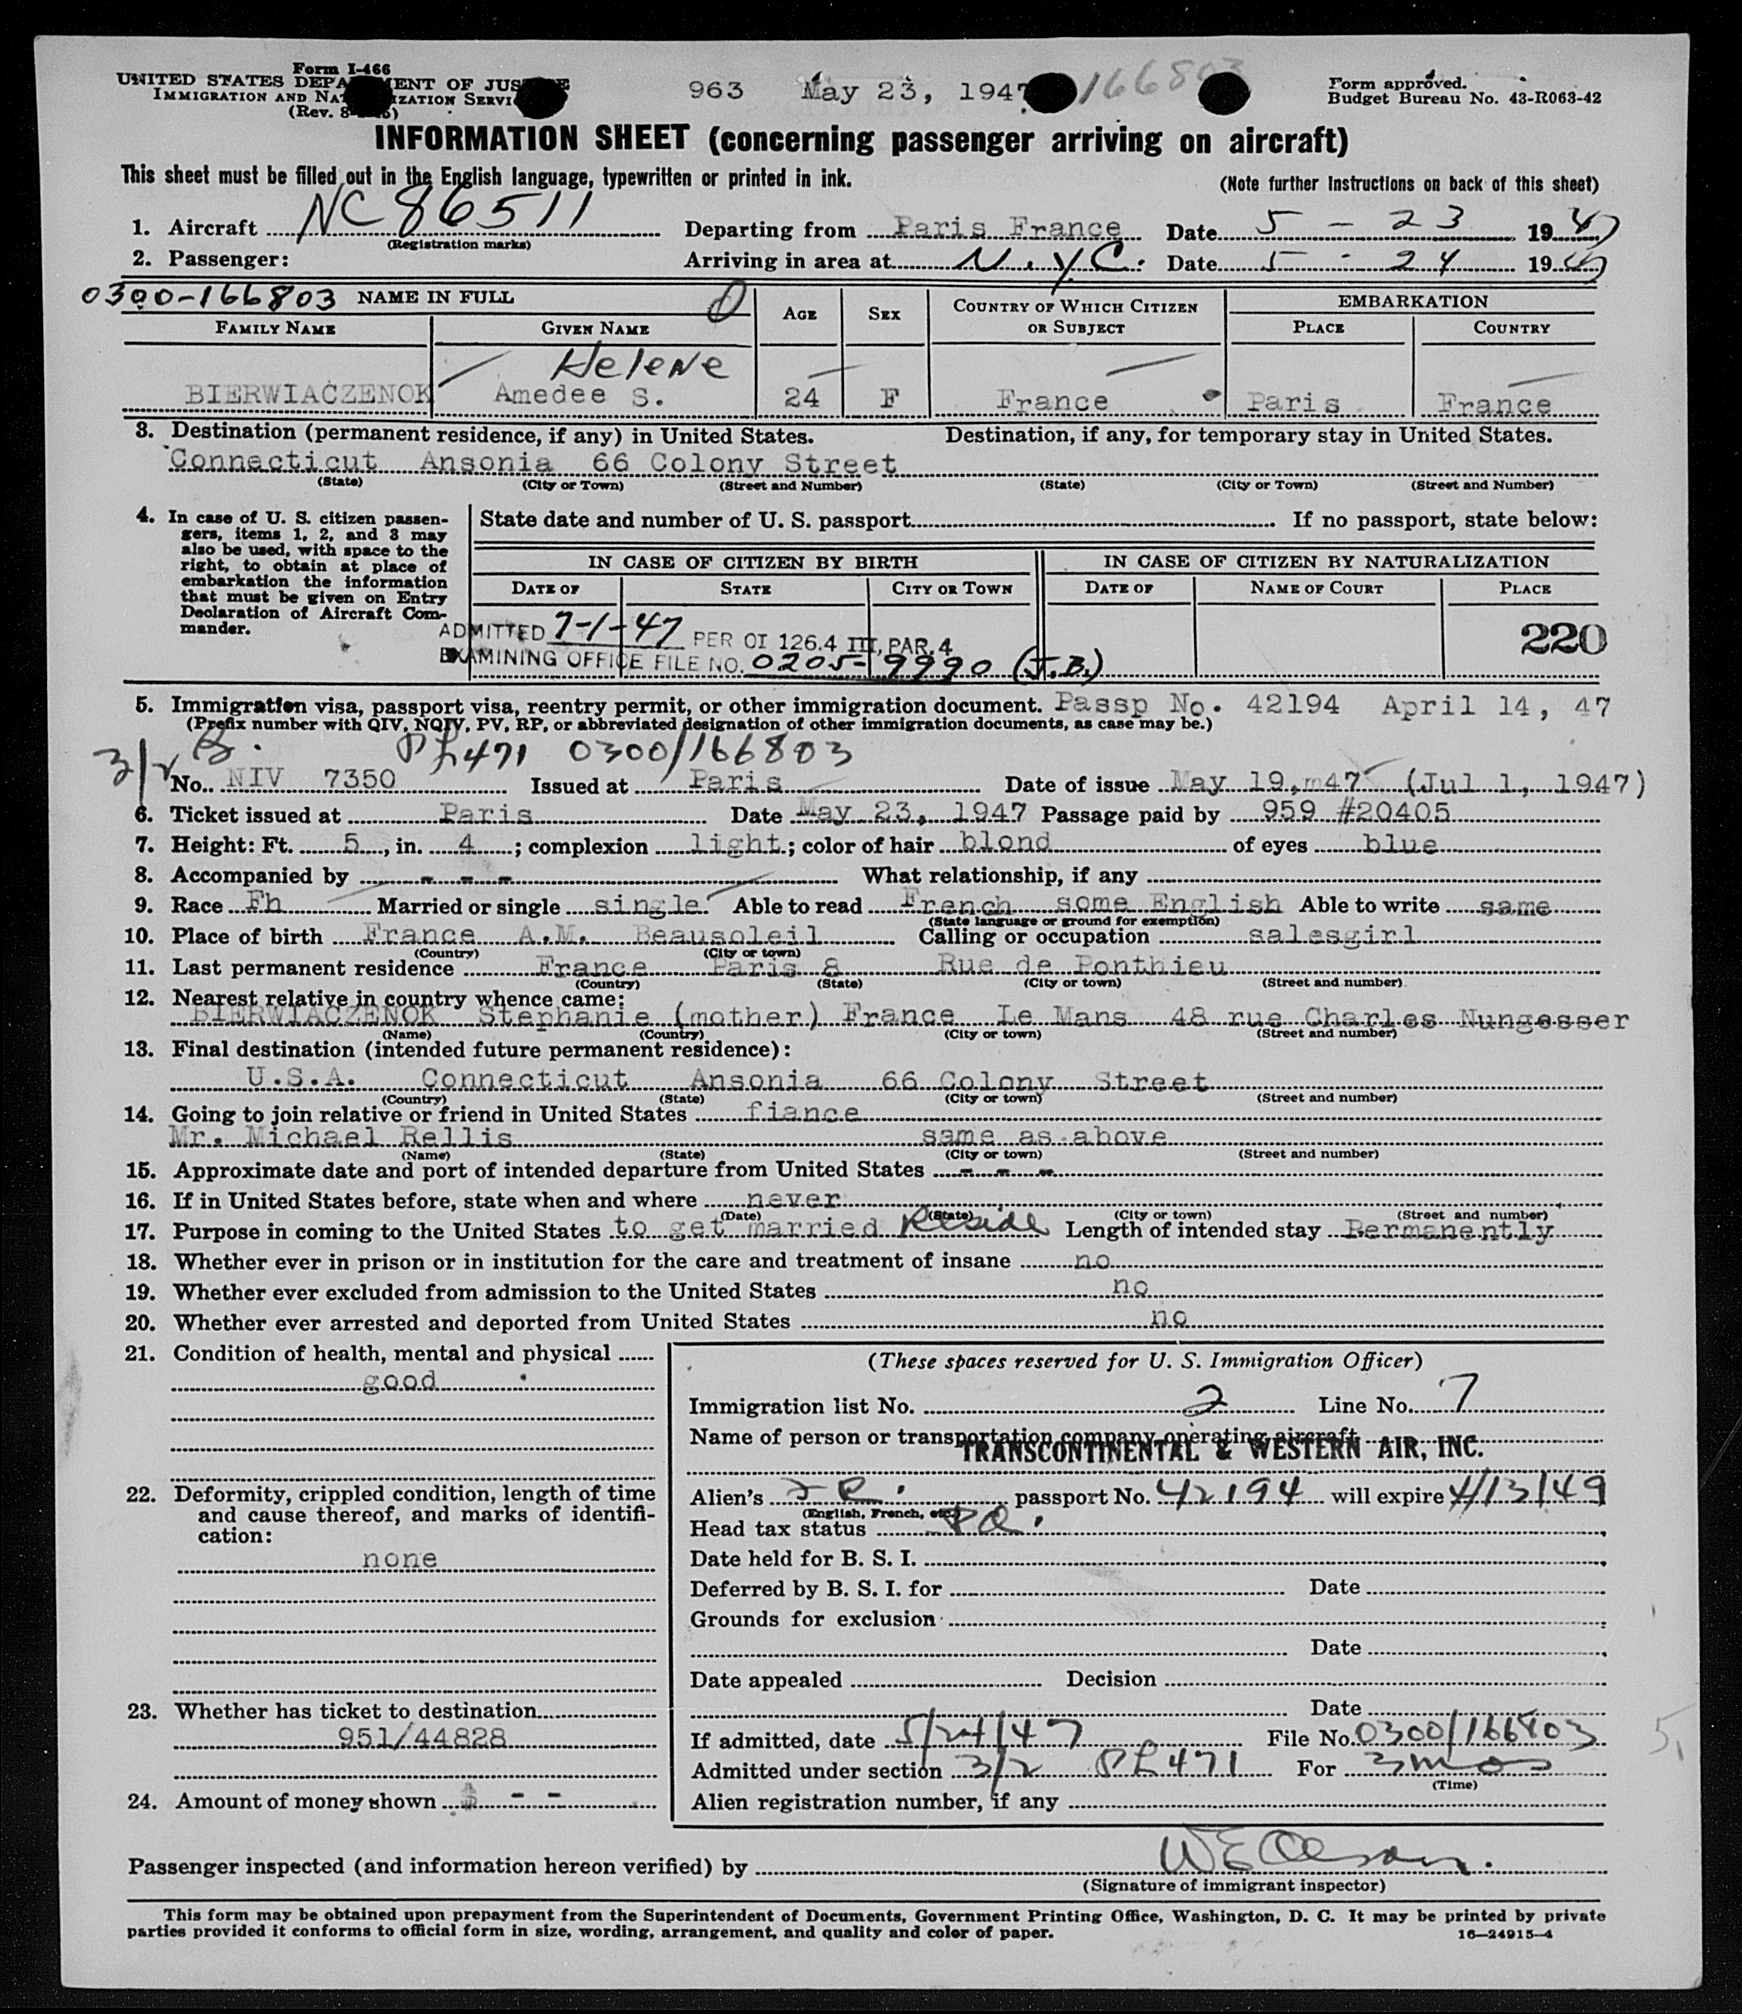 Form I-466
UNITED STATES DEPA ENT OF JUS E
IMMIGRATION AND NA IZATION SERVI
963 May 23, 1947 166803
Form approved.
Budget Bureau No. 43-R063-42
INFORMATION SHEET (concerning passenger arriving on aircraft)
This sheet must be filled out in the English language, typewritten or printed in ink.
(Note further instructions on back of this sheet)
1. Aircraft NC 86511 Departing from Paris France Date 5 - 23 1947
(Registration marks)
2. Passenger: Arriving in area at N.Y.C. Date 5 - 24 1947
0300-166803 NAME IN FULL
AGE SEX COUNTRY OF WHICH CITIZEN OR SUBJECT EMBARKATION
FAMILY NAME GIVEN NAME PLACE COUNTRY
Helene
BIERWIACZENOK Amedee S. 24 F France Paris France
3. Destination (permanent residence, if any) in United States. Destination, if any, for temporary stay in United States.
Connecticut Ansonia 66 Colony Street
(State) (City or Town) (Street and Number) (State) (City or Town) (Street and Number)
4. In case of U. S. citizen passen-
gers, items 1, 2, and 3 may
also be used, with space to the
right, to obtain at place of
embarkation the information
that must be given on Entry
Declaration of Aircraft Com-
mander.
State date and number of U. S. passport If no passport, state below:
IN CASE OF CITIZEN BY BIRTH IN CASE OF CITIZEN BY NATURALIZATION
DATE OF STATE CITY OR TOWN DATE OF NAME OF COURT PLACE
220
ADMITTED 7-1-47 PER OI 126.4 III, PAR. 4
EXAMINING OFFICE FILE NO. 0205-9990 (J.B.)
5. Immigration visa, passport visa, reentry permit, or other immigration document. Passp No. 42194 April 14, 47
(Prefix number with QIV, NQIV, PV, RP, or abbreviated designation of other immigration documents, as case may be.)
3/2 PL471 0300/166803
No. NIV 7350 Issued at Paris Date of issue May 19, m47 (Jul 1, 1947)
6. Ticket issued at Paris Date May 23, 1947 Passage paid by 959 #20405
7. Height: Ft. 5, in. 4; complexion light; color of hair blond of eyes blue
8. Accompanied by - - - What relationship, if any
9. Race Fh Married or single single Able to read French some English Able to write same
(State language or ground for exemption)
10. Place of birth France A.M. Beausoleil Calling or occupation salesgirl
(Country) (City or town)
11. Last permanent residence France Paris 8 Rue de Ponthieu
(Country) (State) (City or town) (Street and number)
12. Nearest relative in country whence came:
BIERWIACZENOK Stephanie (mother) France Le Mans 48 rue Charles Nungesser
(Name) (Country) (City or town) (Street and number)
13. Final destination (intended future permanent residence):
U.S.A. Connecticut Ansonia 66 Colony Street
(Country) (State) (City or town) (Street and number)
14. Going to join relative or friend in United States fiance
Mr. Michael Rellis same as above
(Name) (State) (City or town) (Street and number)
15. Approximate date and port of intended departure from United States - - -
16. If in United States before, state when and where never
(Date) (State) (City or town) (Street and number)
17. Purpose in coming to the United States to get married Reside Length of intended stay Permanently
18. Whether ever in prison or in institution for the care and treatment of insane no
19. Whether ever excluded from admission to the United States no
20. Whether ever arrested and deported from United States no
21. Condition of health, mental and physical
good
22. Deformity, crippled condition, length of time
and cause thereof, and marks of identifi-
cation:
none
23. Whether has ticket to destination
951/44828
24. Amount of money shown $ - -
(These spaces reserved for U. S. Immigration Officer)
Immigration list No. 2 Line No. 7
Name of person or transportation company operating aircraft
TRANSCONTINENTAL & WESTERN AIR, INC.
Alien's passport No. 42194 will expire 4/13/49
(English, French, etc.)
Head tax status
Date held for B. S. I.
Deferred by B. S. I. for Date
Grounds for exclusion
Date
Date appealed Decision
Date
If admitted, date 5/24/47 File No. 0300/166803
Admitted under section 3/2 PL471 For 3 mos
(Time)
Alien registration number, if any
Passenger inspected (and information hereon verified) by
(Signature of immigrant inspector)
This form may be obtained upon prepayment from the Superintendent of Documents, Government Printing Office, Washington, D. C. It may be printed by private
parties provided it conforms to official form in size, wording, arrangement, and quality and color of paper.
16—24915-4